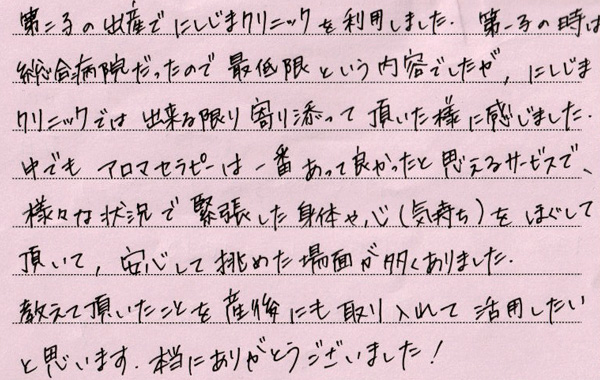 第二子の出産でにしじまクリニックを利用しました. 第一子の時は
総合病院だったので最低限という内容でしたが, にしじま
クリニックでは出来る限り寄り添って頂いた様に感じました.
中でもアロマセラピーは一番あって良かったと思えるサービスで、
様々な状況で緊張した身体や心(気持ち)をほぐして
頂いて, 安心して挑めた場面が多くありました.
教えて頂いたことを産後にも取り入れて活用したい
と思います. 本当にありがとうございました!